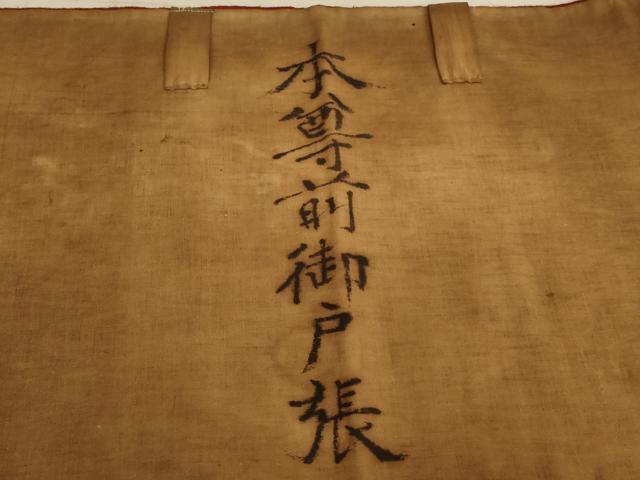 本尊前御戸張